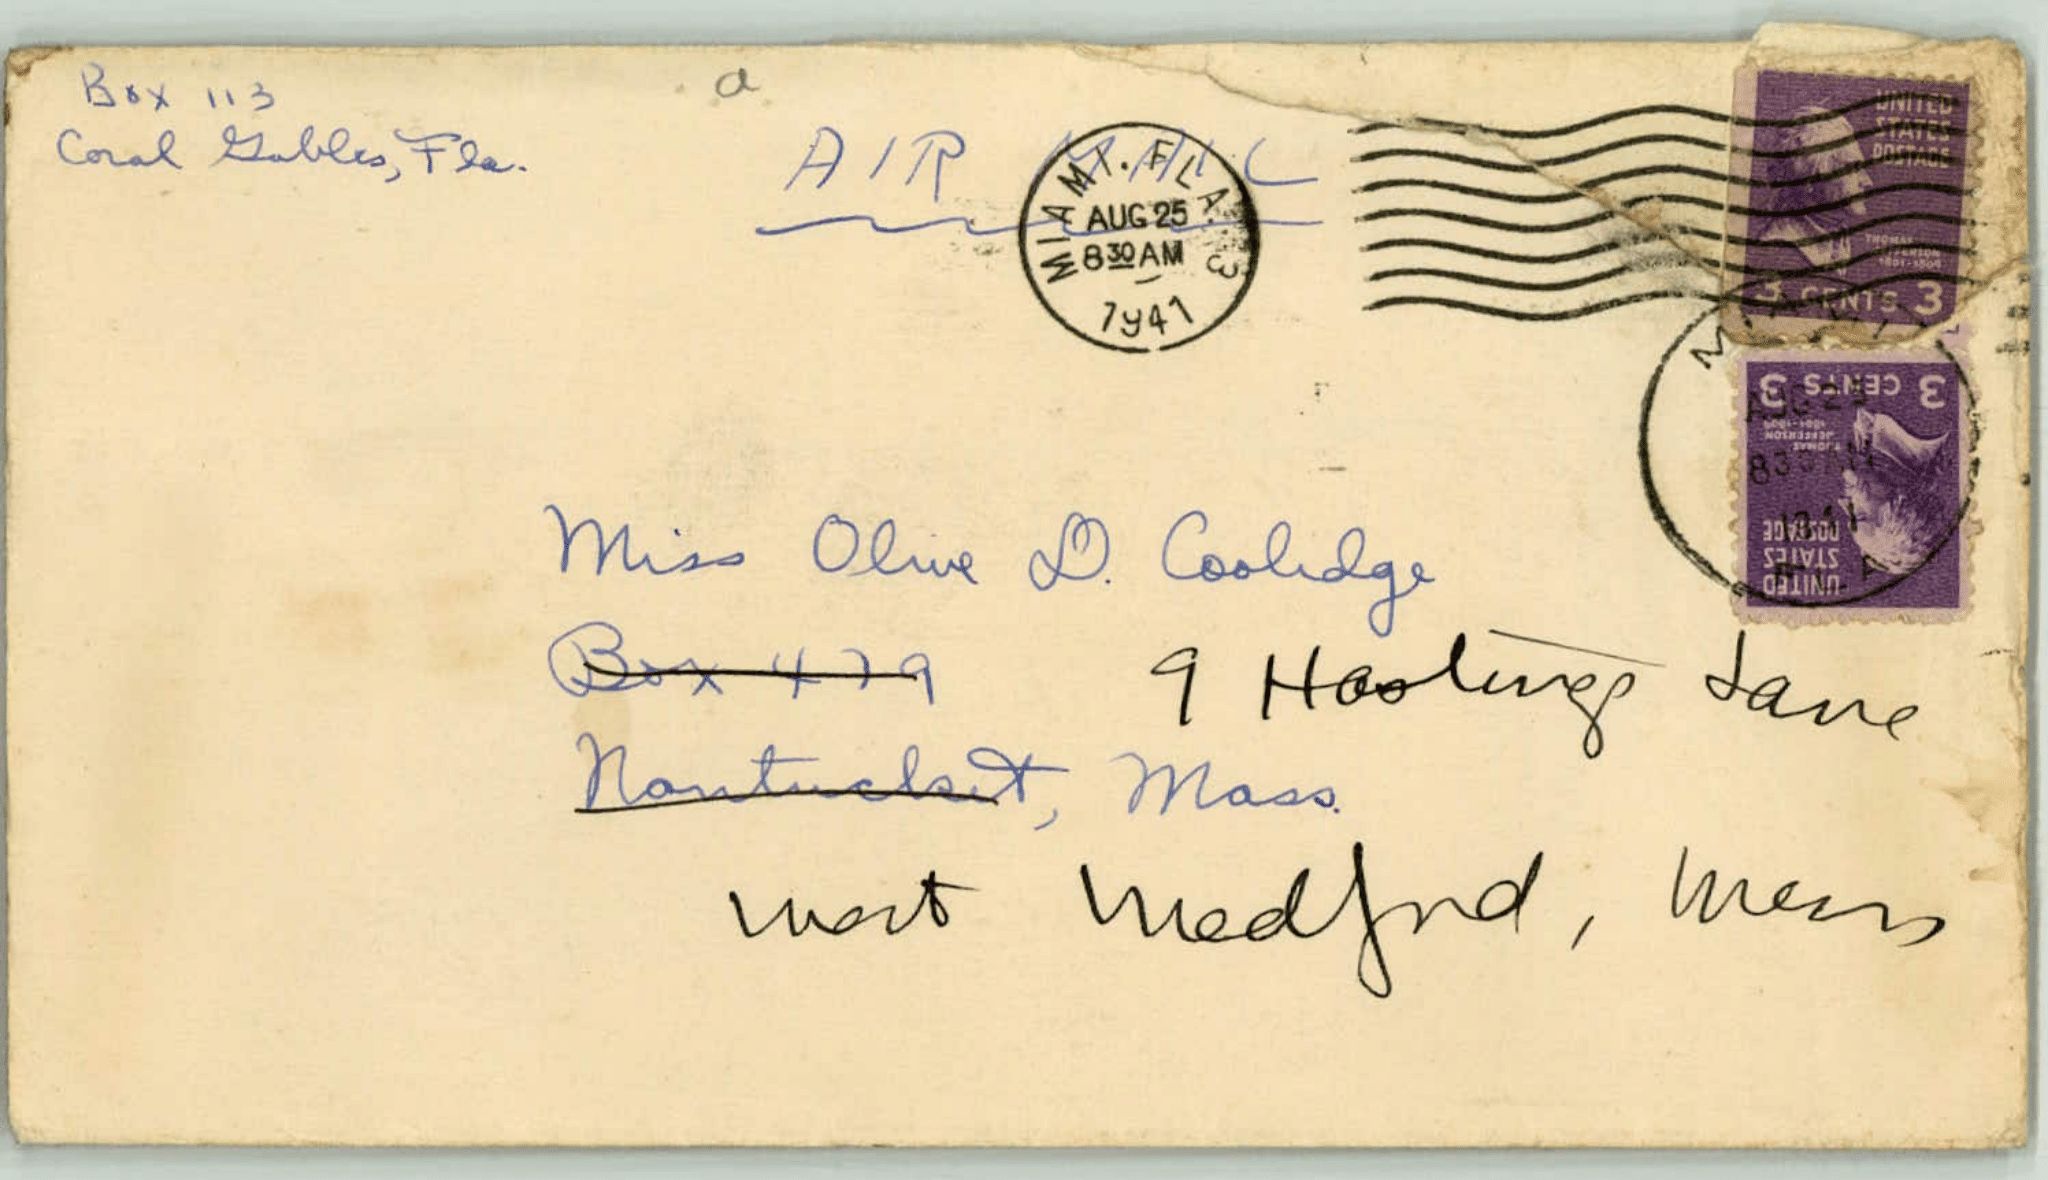 Box 113
Coral Gables, Fla.
a
AIR MAIL
MIAMI, FLA. 13
AUG 25
8 30 AM
1941
UNITED
STATES
POSTAGE
THOMAS
JEFFERSON
1801-1809
3 CENTS 3
MIAMI
AUG 25
8 30 AM
1941
FLA
3 CENTS 3
THOMAS
JEFFERSON
1801-1809
UNITED
STATES
POSTAGE
Miss Olive D. Coolidge
Box 479 9 Hastings Lane
Nantucket, Mass.
West Medford, Mass